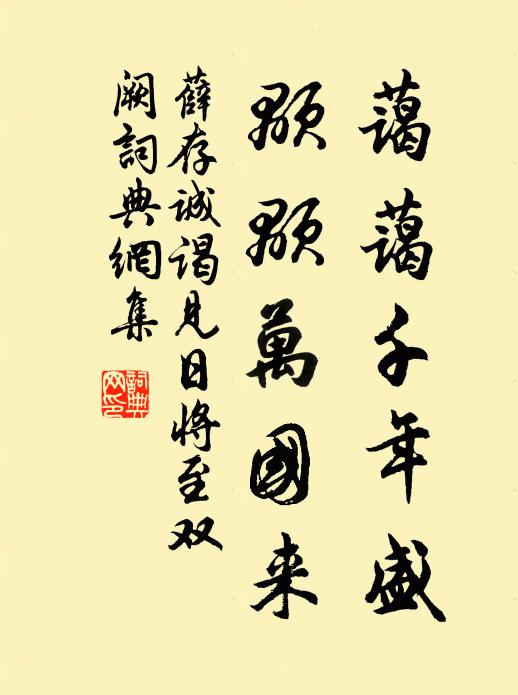 藹藹千年盛
顒顒萬國来
薛存誠謁見日將至双
闕詞典網集
詞典
网印